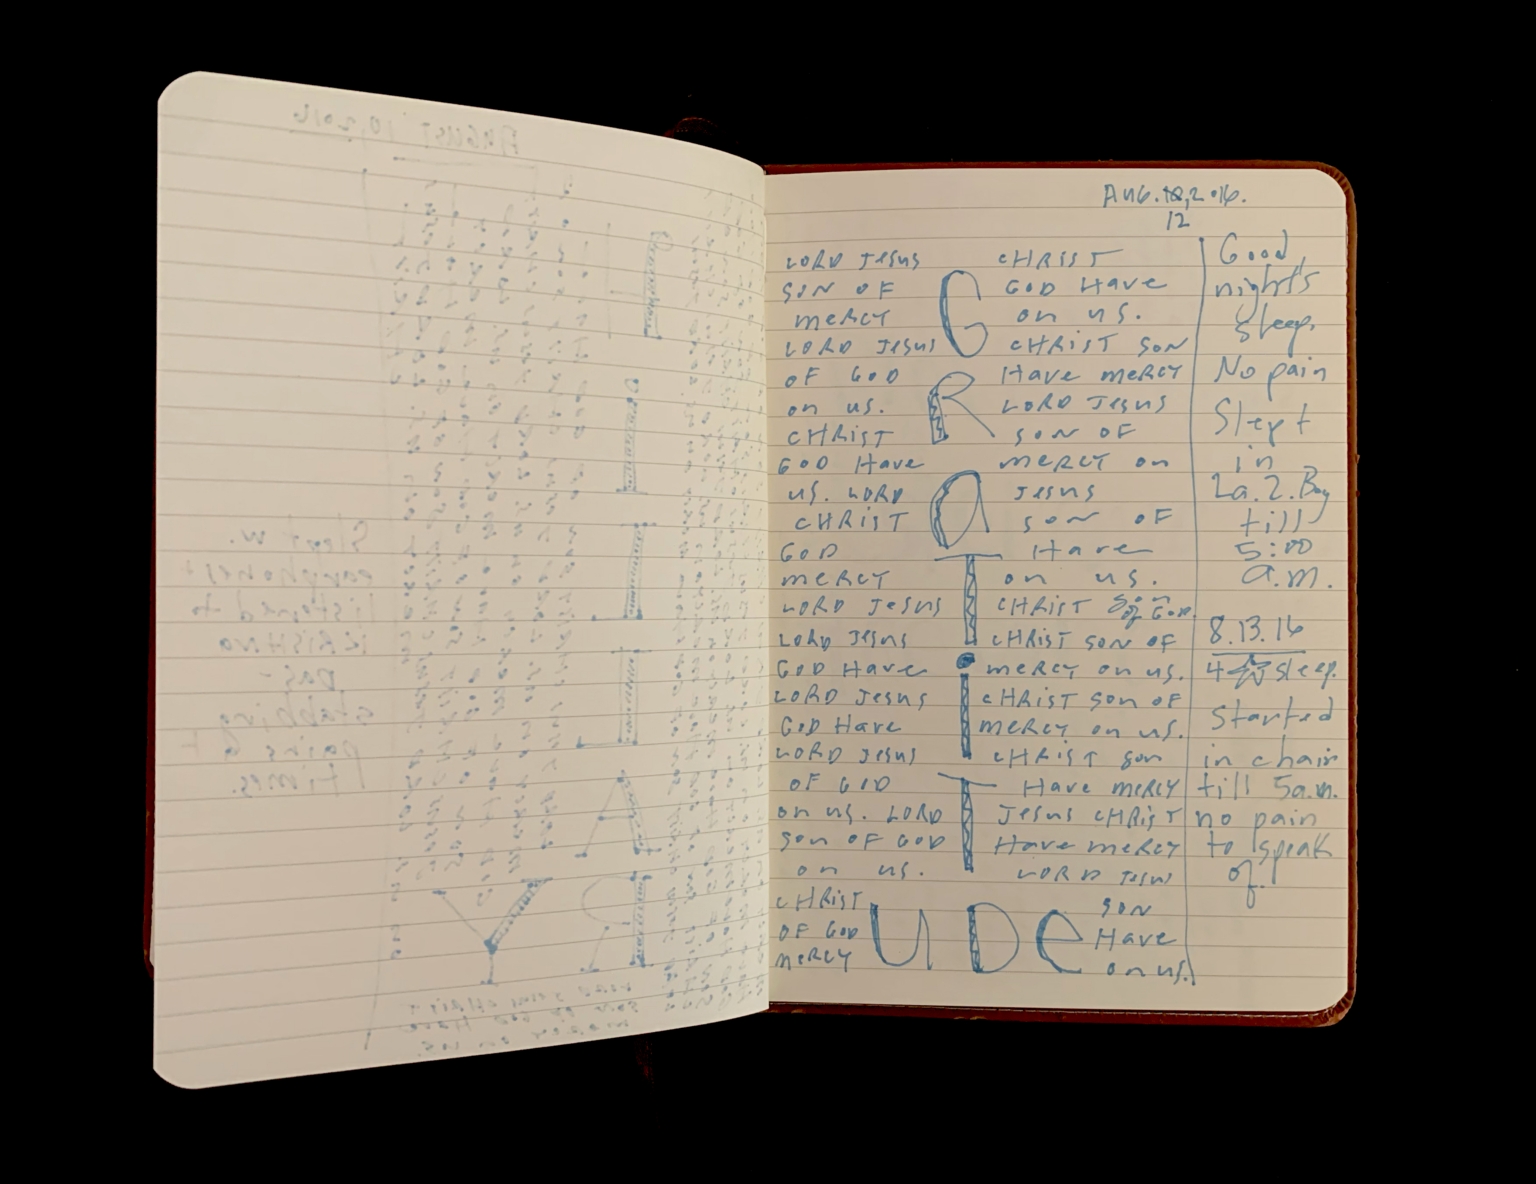 AUGUST 10, 2016
Slept w.
earphones +
listened to
stabbing
pains 6+
times.
LORD JESUS CHRIST
SON OF GOD HAVE
MERCY ON US.
AUG. 12, 2016.
12
LORD JESUS CHRIST
SON OF GOD Have
meRCY on us.
LORD JESUS CHRIST SON
OF GOD Have meRCY
on us. LORD Jesus
CHRIST SON OF
GOD Have meRCY on
us. LORD Jesus
CHRIST SON OF
GOD Have
meRCY on us.
LORD Jesus CHRIST Son of GOD.
LORD Jesus CHRIST SON OF
GOD Have meRCY on us.
LORD Jesus CHRIST SON OF
GOD Have meRCY on us.
LORD Jesus CHRIST Son
OF GOD Have meRCY
on us. LORD Jesus CHRIST
Son OF GOD Have meRCY
on us. LORD Jesus
CHRIST SON
OF GOD Have
meRCY on us.
GRaTiTUDe
Good
night's
sleep.
No pain
Slept
in
La.Z.Boy
till
5:00
a.m.
8.13.16
sleep.
Started
in chair
till 5a.m.
no pain
to speak
of.